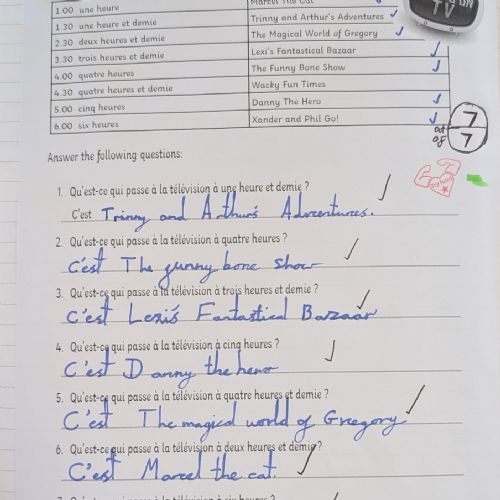 1.00 une heure Marcel The Cat
1 30 une heure et demie Trinny and Arthur's Adventures
2.30 deux heures et demie The Magical World of Gregory
3.30 trois heures et demie Lexi's Fantastical Bazaar
4.00 quatre heures The Funny Bone Show
4.30 quatre heures et demie Wacky Fun Times
5.00 cinq heures Danny The Hero
6.00 six heures Xander and Phil Go!
ON
TV
7
out of
7
Answer the following questions:
1. Qu'est-ce qui passe à la télévision à une heure et demie ?
C'est Trinny and Arthur's Adventures.
2. Qu'est-ce qui passe à la télévision à quatre heures ?
C'est The funny bone show
3. Qu'est-ce qui passe à la télévision à trois heures et demie ?
C'est Lexi's Fantastical Bazaar
4. Qu'est-ce qui passe à la télévision à cinq heures ?
C'est Danny the hero
5. Qu'est-ce qui passe à la télévision à quatre heures et demie ?
C'est The magical world of Gregory
6. Qu'est-ce qui passe à la télévision à deux heures et demie ?
C'est Marcel the cat.